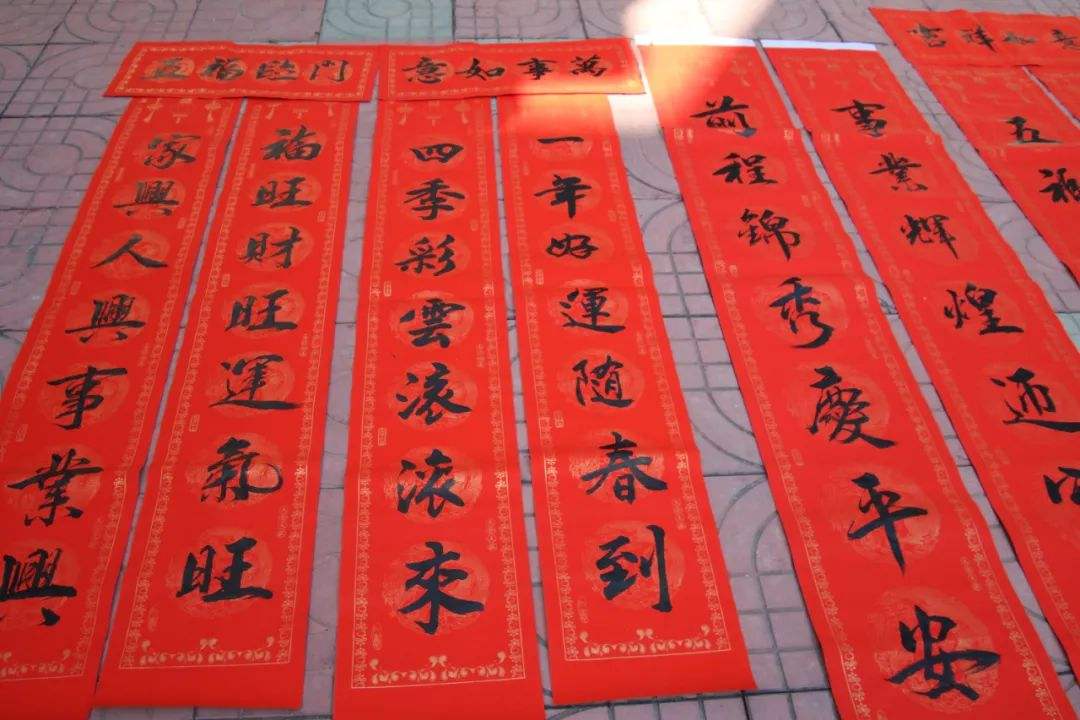 五福臨門
萬事如意
吉祥如意
家興人興事業興
福旺財旺運氣旺
四季彩雲滚滚來
一年好運随春到
前程錦秀慶平安
事業輝煌迎四
五福